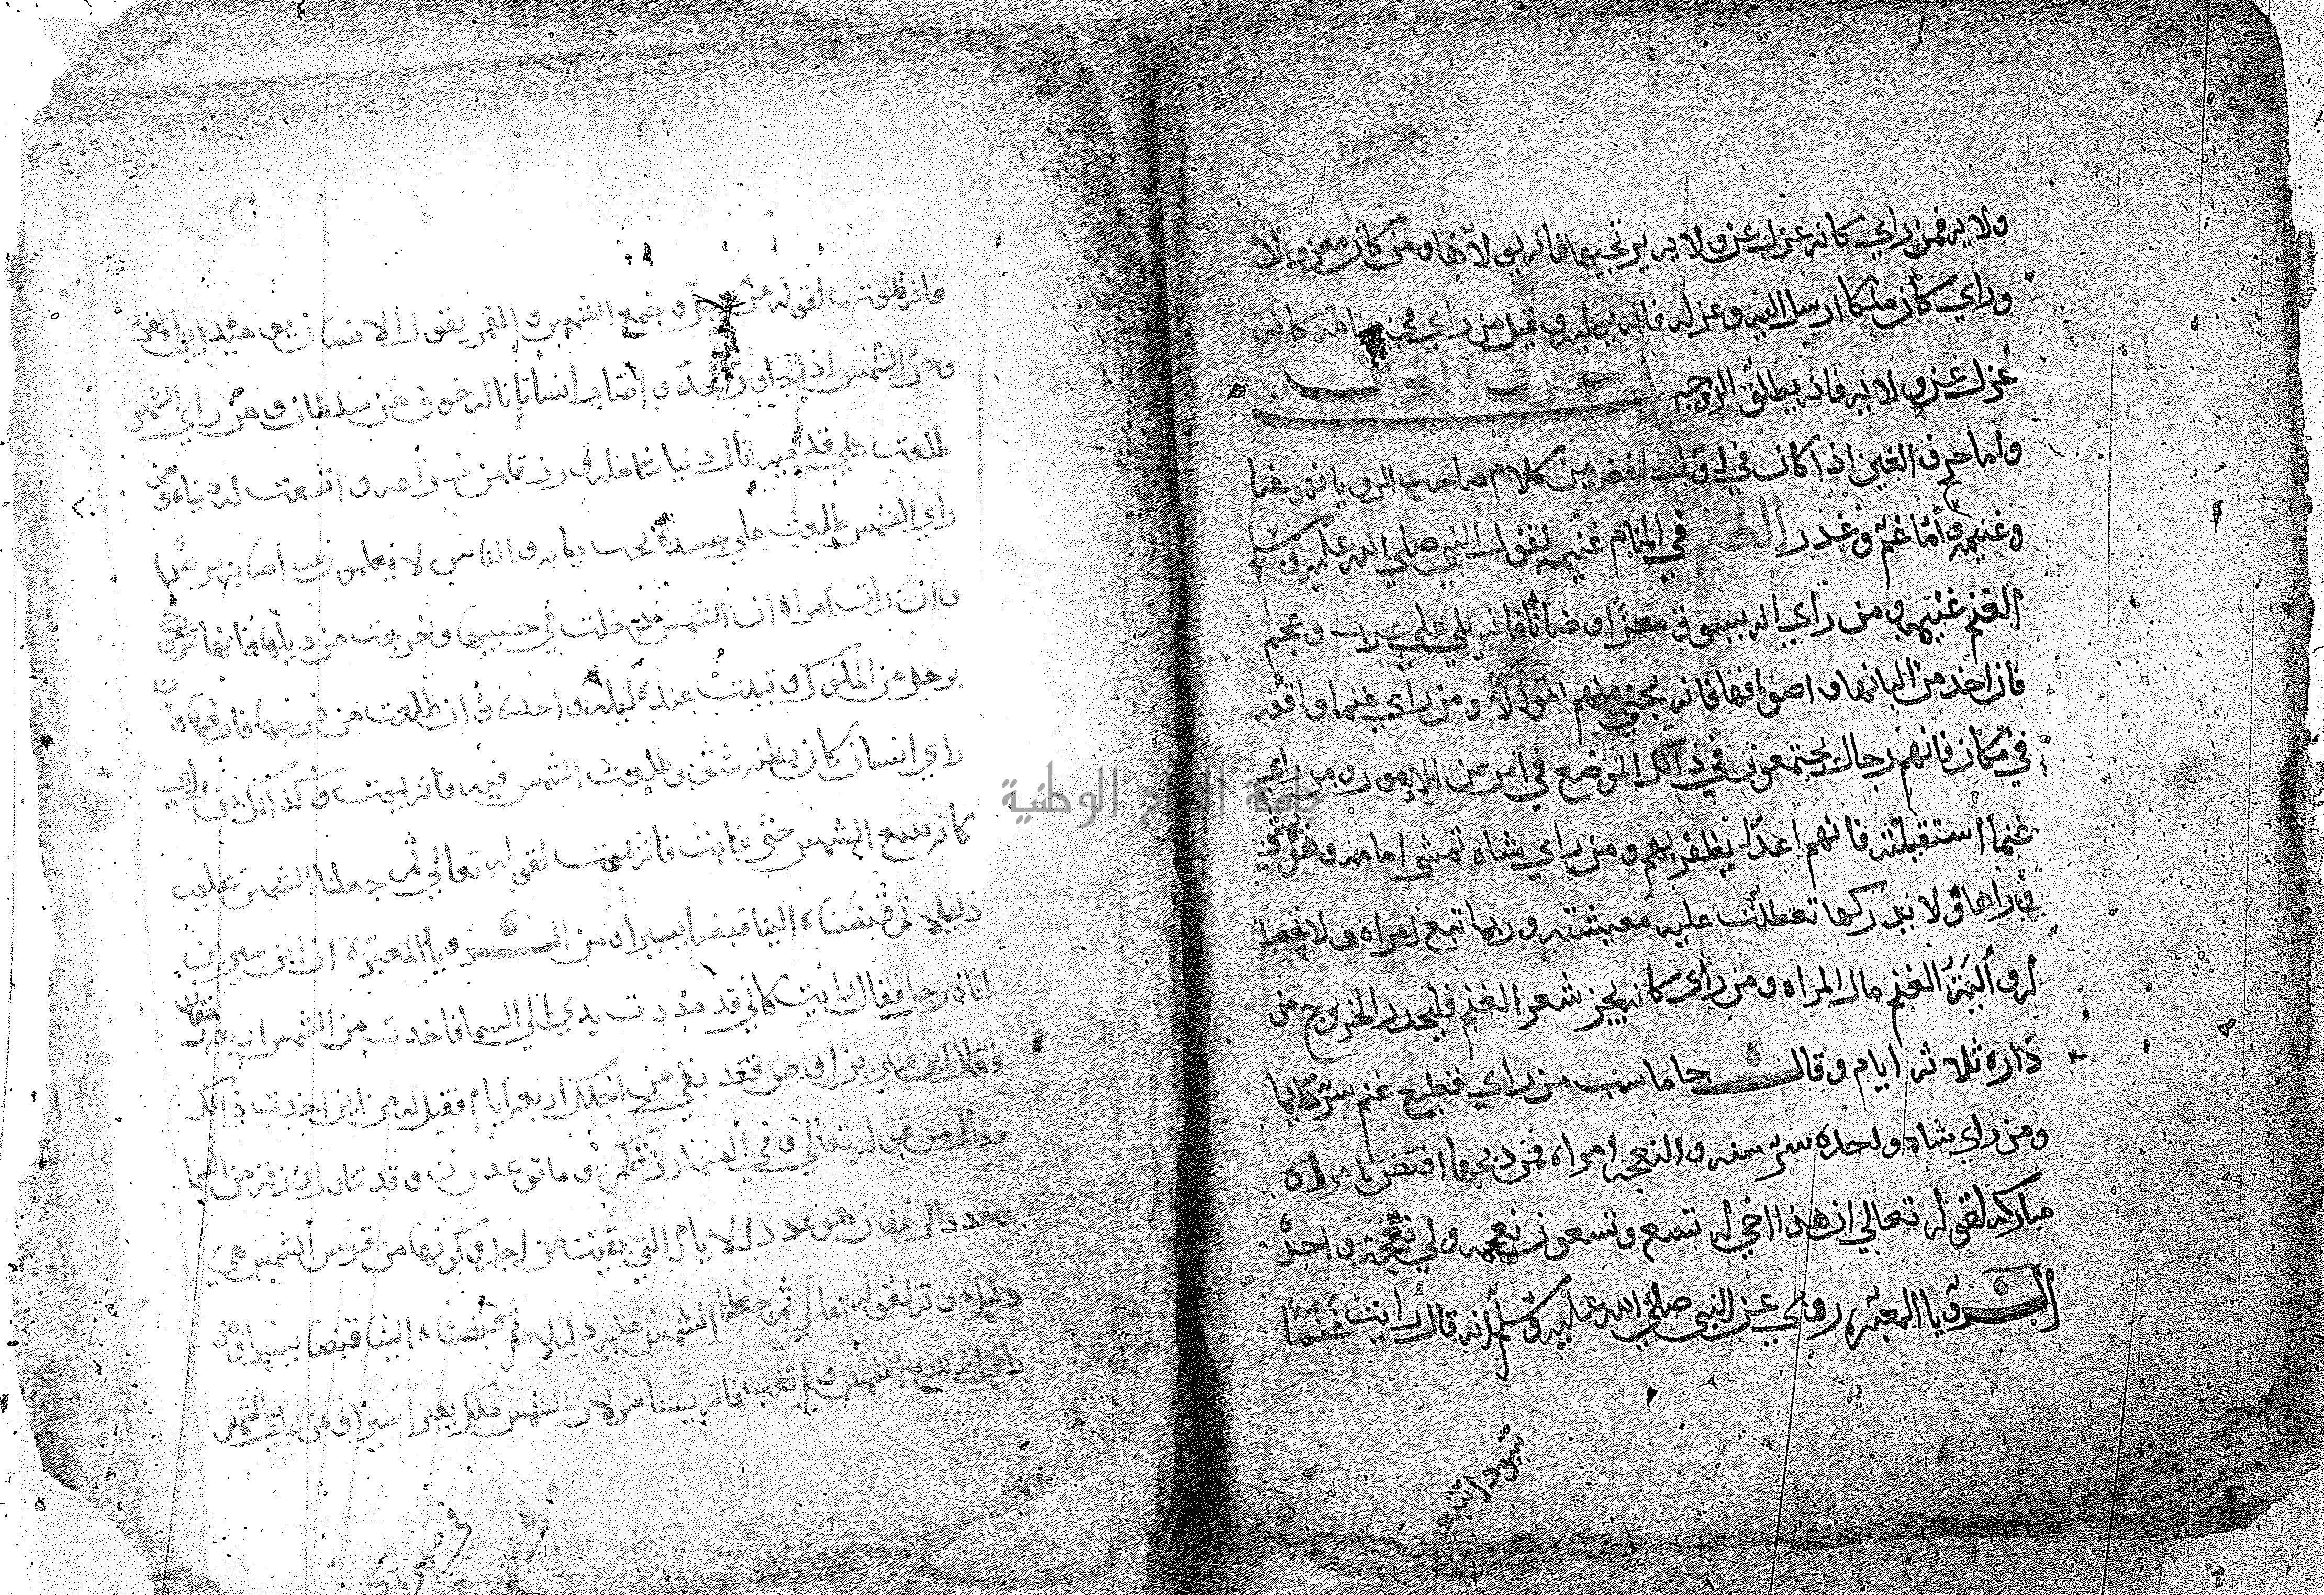 ولايه فمن راي كانه عزل عن ولايه يرتجيها فانه يولاها ومن كان معزولاً
وراي كأن ملكا ارسل اليه وعزله فانه يوليه وقيل من راي في منامه كانه
عزل عن ولايه فانه يطلق الزوجه حرف الغين
واما حرف الغين اذا كان في اول لفض من كلام صاحب الرويا فهو غنا
وغنيمه واما غم وغدر الغنم في المنام غنيمه لقول النبي صلي الله عليه وسلم
الغنم غنيمه ومن راي انه يسوق معزاً او ضانا فانه يلي علي عرب وعجم
فان اخد من البانها و اصوافها فانه يجني منهم اموالاً ومن راي غنما واقفه
في مكان فانهم رجال يجتمعون في ذالك الموضع في امر من الامور ومن راي
غنما استقبلته فانهم اعدا يظفر بهم ومن راي شاه تمشي امامه وهو يمشي
وراها ولا يدركها تعطلت عليه معيشته وربما تبع امراه ولا تحصل
له والية الغنم مال المراه ومن راى كانه يجز شعر الغنم فليحدر الخروج من
داره ثلاثه ايام وقال جاماسب من راي قطيع غنم سر دايما
ومن راي شاه واحده سر سنه والنعجه امراه فمن دبحها افتض بامراه
مباركه لقوله تعالي ان هذا اخي له تسع وتسعون نعجه ولي نعجة واحدة
الرويا المعبره روي عن النبي صلي الله عليه وسلم انه قال رايت غنماً
سودا تتبع
فانه يموت لقوله عز وجل وجمع الشمس والقمر يقول الانسان يوميد اين المفر
وحر الشمس اذا جاوز الحد و اصاب انسانا ناله خوف من سلطان ومن راي الشمس
طلعت علي قدميه نال دنيا شامله ورزقا من زراعه واتسعت له دنياه ومن
راي الشمس طلعت علي جسده تحت ثيابه والناس لا يعلمون اصابه برص
وان رات امراه ان الشمس دخلت في جيبها وخرجت من ديلها فانها تتزوج
برجل من الملوك وتبيت عنده ليله واحده وان طلعت من فرجها فانها
راي انسان كان بطنه شق وطلعت الشمس فيه فانه يموت وكذالك من راي
كانه تبع الشمس حتي غابت فانه يموت لقوله تعالي ثم جعلنا الشمس عليه
دليلا ثم قبضناه الينا قبضا يسيرا ومن الرويا المعبره ان ابن سيرين
اتاه رجل فقال رايت كاني قد مددت يدي الي السما فاخدت من الشمس اربعه
فقال ابن سيرين اوص فقد بقي من اجلك اربعه ايام فقيل له من اين اخدت ذالك
فقال من قوله تعالي وفي السما رزقكم وما توعدون وقد تناول رزقه من السما
وعدد الرغفان هو عدد الايام التي بقيت من اجله وكونها من قرص الشمس هي
دليل موته لقوله تعالي ثم جعلنا الشمس عليه دليلا ثم قبضناه الينا قبضا يسيرا ومن
راي انه تبع الشمس ولم تغب فانه يستاسر لان الشمس ملك يعبر اسيرا ومن راي الشمس
جامعة النجاح الوطنية